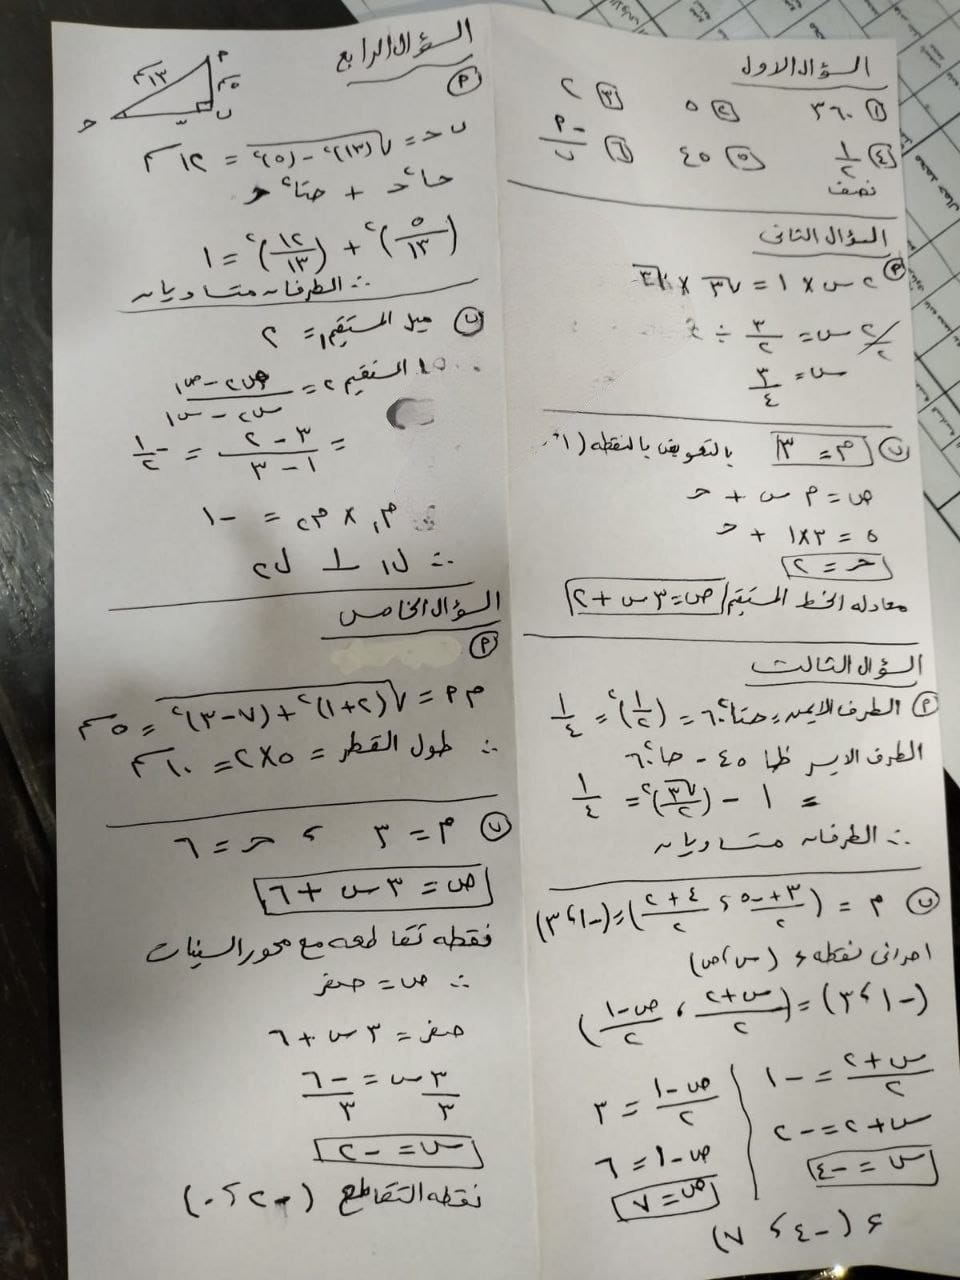 السؤال الاول
① ٣٦٠ ② ٥ ③ ٢
④ ١/٢ ⑤ ٤٥ ⑥ -٢/ب
نصف
السؤال الثاني
Ⓟ ٢س × ١ = √٣ ×
٢/٢ س = ٣/٢ ÷
س = ٣/٤
ⓑ م = ٣ بالتعويض بالنقطه (١
ص = م س + حـ
٥ = ٣×١ + حـ
حـ = ٢
معادله الخط المستقيم ص = ٣س + ٢
السؤال الثالث
الطرف الايمن = حتا²٦٠ = (١/٢)² = ١/٤
الطرف الايسر ظا ٤٥ - حا²٦٠
= ١ - (√٣/٢)² = ١/٤
∴ الطرفان متساويان
ب م = (٣+-٥/٢ ، ٤+٢/٢) = (-١، ٣)
احداثي نقطه ء (س، ص)
(-١، ٣) = (س+٢/٢ ، ص-١/٢)
س+٢/٢ = -١
س+٢ = -٢
س = -٤
ص-١/٢ = ٣
ص-١ = ٦
ص = ٧
ء (-٤، ٧)
السؤال الرابع
٢
١٣سم
٥سم
ب
حـ
ب حـ = √(١٣)² - (٥)² = ١٢سم
حا²حـ + حتا²حـ
(٥/١٣)² + (١٢/١٣)² = ١
∴ الطرفان متساويان
ب ميل المستقيم١ = ٢
المستقيم ٢ = ص٢ - ص١/س٢ - س١
= ٣ - ٢/١ - ٣ = -١/٢
م١ × م٢ = -١
∴ ل١ ⊥ ل٢
السؤال الخامس
م٢ = √(٢+١)² + (٧-٣)² = ٥سم
∴ طول القطر = ٥×٢ = ١٠سم
ب م = ٣ ، حـ = ٦
ص = ٣س + ٦
فنقطه تقاطعه مع محور السينات
∴ ص = صفر
صفر = ٣س + ٦
٣س/٣ = -٦/٣
س = -٢
نقطه التقاطع (-٢، ٠)